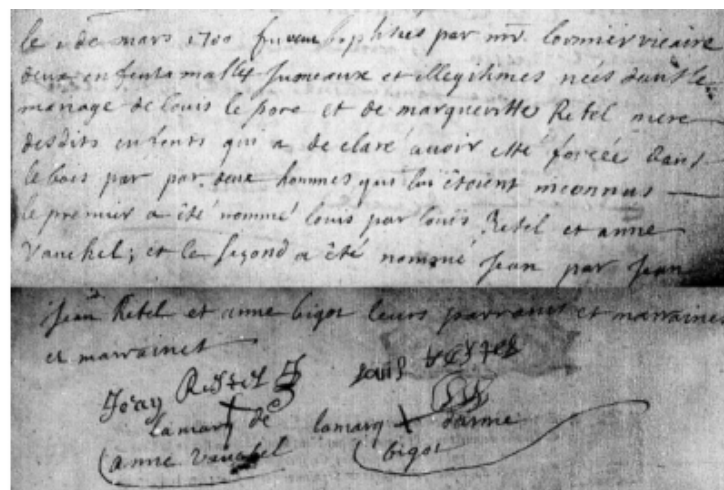 le 1 de mars 1700 furent baptisés par mr. Cormier vicaire
deux enfents malles jumeaux et illegitimes nées dans le
mariage de louis le pore et de margueritte Retel mere
desdits enfents qui a declaré avoir etté forcée dans
le bois par par deux hommes qui lui étoient inconnus
le premier a été nommé louis par louis Retel et anne
Vauchel; et le segond a été nommé jean par jean
jean Retel et anne bigot leurs parrains et marraines
et marraines
Jean Restel louis Restel
lamarq de lamarq danne
anne vauchel bigot